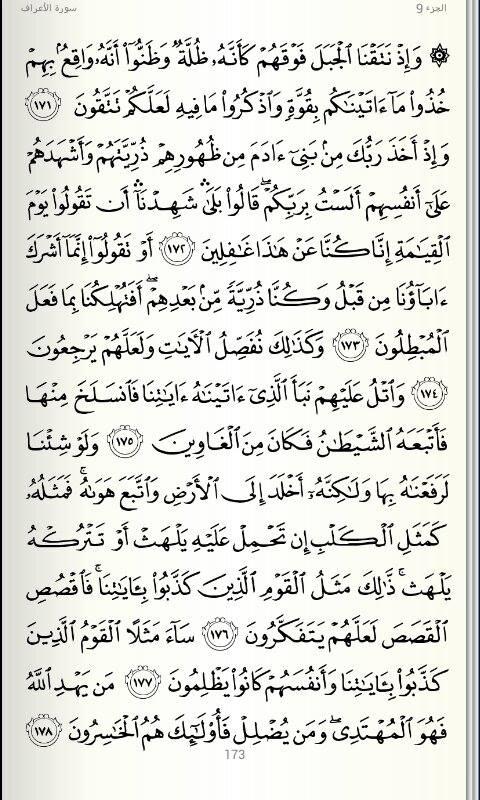 سورة الأعراف
الجزء 9
۞ وَإِذْ نَتَقْنَا ٱلْجَبَلَ فَوْقَهُمْ كَأَنَّهُۥ ظُلَّةٌ وَظَنُّوٓا۟ أَنَّهُۥ وَاقِعٌۢ بِهِمْ
خُذُوا۟ مَآ ءَاتَيْنَـٰكُم بِقُوَّةٍ وَٱذْكُرُوا۟ مَا فِيهِ لَعَلَّكُمْ تَتَّقُونَ ١٧١
وَإِذْ أَخَذَ رَبُّكَ مِنۢ بَنِىٓ ءَادَمَ مِن ظُهُورِهِمْ ذُرِّيَّتَهُمْ وَأَشْهَدَهُمْ
عَلَىٰٓ أَنفُسِهِمْ أَلَسْتُ بِرَبِّكُمْ ۖ قَالُوا۟ بَلَىٰ ۛ شَهِدْنَآ ۛ أَن تَقُولُوا۟ يَوْمَ
ٱلْقِيَـٰمَةِ إِنَّا كُنَّا عَنْ هَـٰذَا غَـٰفِلِينَ ١٧٢ أَوْ تَقُولُوٓا۟ إِنَّمَآ أَشْرَكَ
ءَابَآؤُنَا مِن قَبْلُ وَكُنَّا ذُرِّيَّةً مِّنۢ بَعْدِهِمْ ۖ أَفَتُهْلِكُنَا بِمَا فَعَلَ
ٱلْمُبْطِلُونَ ١٧٣ وَكَذَٰلِكَ نُفَصِّلُ ٱلْـَٔايَـٰتِ وَلَعَلَّهُمْ يَرْجِعُونَ
١٧٤ وَٱتْلُ عَلَيْهِمْ نَبَأَ ٱلَّذِىٓ ءَاتَيْنَـٰهُ ءَايَـٰتِنَا فَٱنسَلَخَ مِنْهَا
فَأَتْبَعَهُ ٱلشَّيْطَـٰنُ فَكَانَ مِنَ ٱلْغَاوِينَ ١٧٥ وَلَوْ شِئْنَا
لَرَفَعْنَـٰهُ بِهَا وَلَـٰكِنَّهُۥٓ أَخْلَدَ إِلَى ٱلْأَرْضِ وَٱتَّبَعَ هَوَىٰهُ ۚ فَمَثَلُهُۥ
كَمَثَلِ ٱلْكَلْبِ إِن تَحْمِلْ عَلَيْهِ يَلْهَثْ أَوْ تَتْرُكْهُ
يَلْهَث ۚ ذَّٰلِكَ مَثَلُ ٱلْقَوْمِ ٱلَّذِينَ كَذَّبُوا۟ بِـَٔايَـٰتِنَا ۚ فَٱقْصُصِ
ٱلْقَصَصَ لَعَلَّهُمْ يَتَفَكَّرُونَ ١٧٦ سَآءَ مَثَلًا ٱلْقَوْمُ ٱلَّذِينَ
كَذَّبُوا۟ بِـَٔايَـٰتِنَا وَأَنفُسَهُمْ كَانُوا۟ يَظْلِمُونَ ١٧٧ مَن يَهْدِ ٱللَّهُ
فَهُوَ ٱلْمُهْتَدِى ۖ وَمَن يُضْلِلْ فَأُو۟لَـٰٓئِكَ هُمُ ٱلْخَـٰسِرُونَ ١٧٨
173